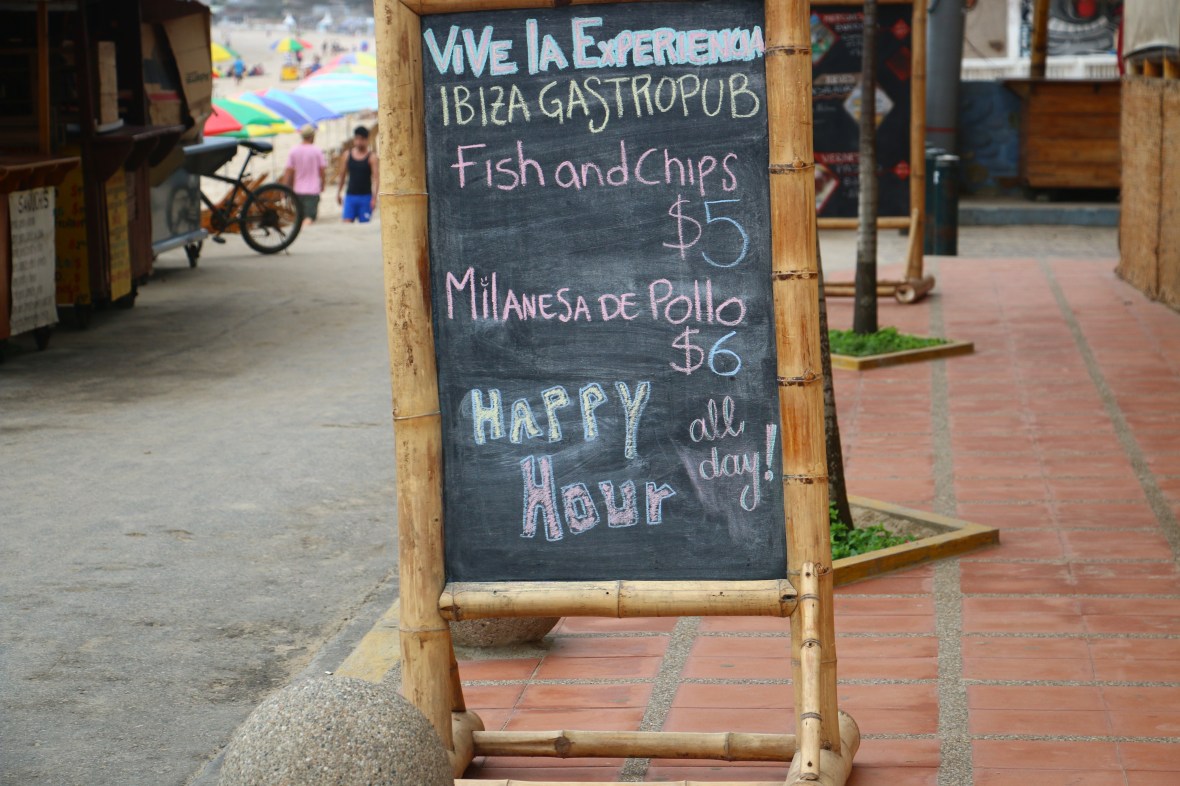 ViVe la Experiencia
IBIZA GASTROPUB
Fish and Chips
$5
Milanesa de Pollo
$6
Happy
Hour
all
day!